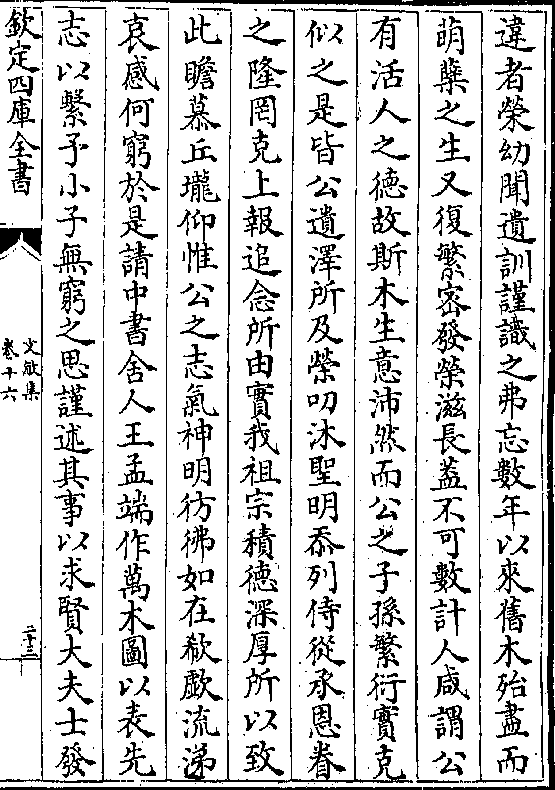 違者榮幼聞遺訓謹識之弗忘數年以來舊木殆盡而
萌蘖之生又復繁密發榮滋長蓋不可數計人咸謂公
有活人之德故斯木生意沛然而公之子孫繁衍實克
似之是皆公遺澤所及榮叨沐聖明忝列侍從承恩眷
之隆罔克上報追念所由實我祖宗積德深厚所以致
此瞻慕丘壠仰惟公之志氣神明彷彿如在欷歔流涕
哀感何窮於是請中書舍人王孟端作萬木圖以表先
志以繫予小子無窮之思謹述其事以求賢大夫士發
欽定四庫全書
文敏集
卷十六
二十三